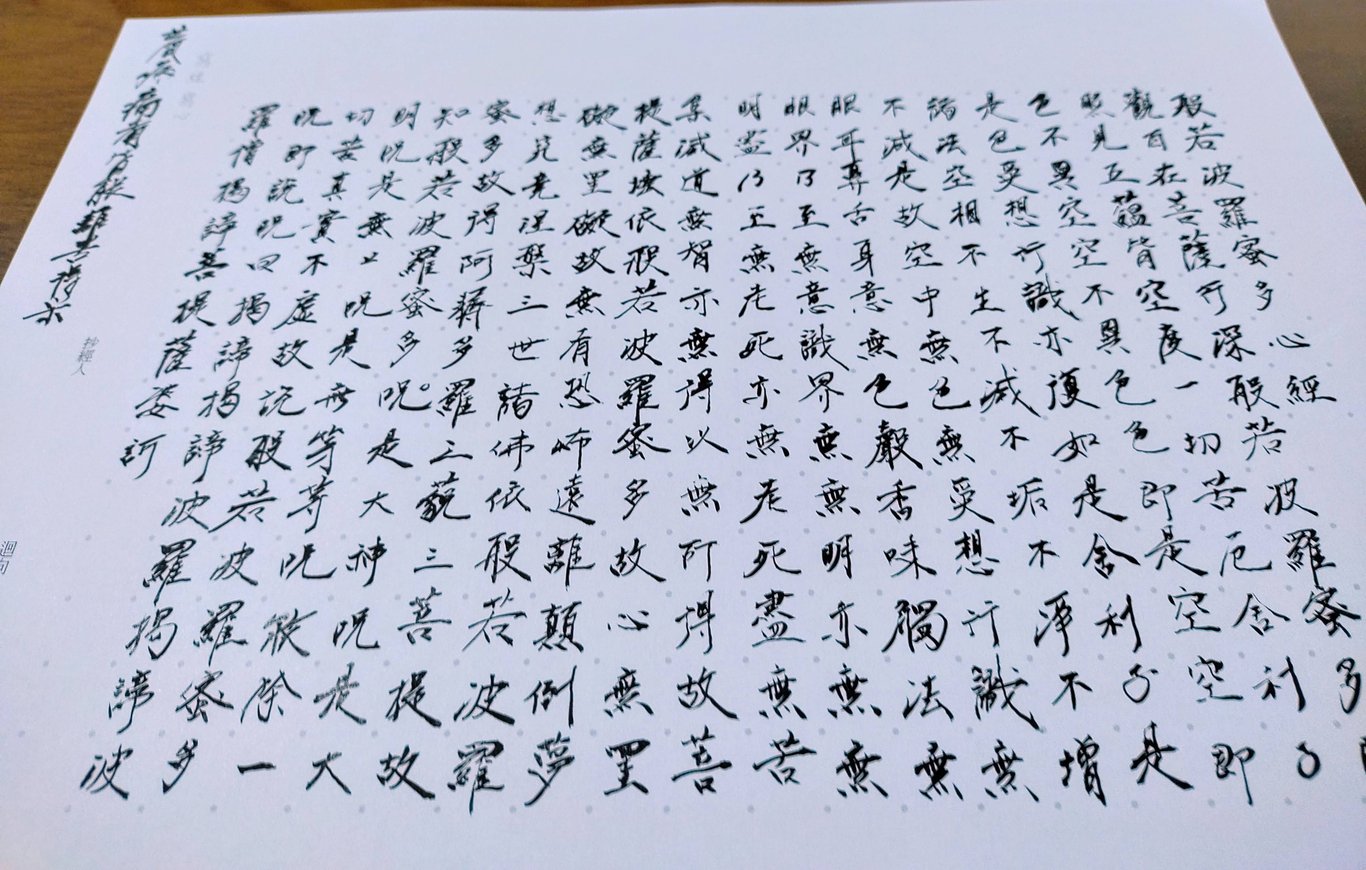 般若波羅蜜多心經
觀自在菩薩行深般若波羅蜜多
照見五蘊皆空度一切苦厄舍利子
色不異空空不異色色即是空空即
是色受想行識亦復如是舍利子是
諸法空相不生不滅不垢不淨不增
不減是故空中無色無受想行識無
眼耳鼻舌身意無色聲香味觸法無
眼界乃至無意識界無無明亦無無
明盡乃至無老死亦無老死盡無苦
集滅道無智亦無得以無所得故菩
提薩埵依般若波羅蜜多故心無罣
礙無罣礙故無有恐怖遠離顛倒夢
想究竟涅槃三世諸佛依般若波羅
蜜多故得阿耨多羅三藐三菩提故
知般若波羅蜜多呪是大神呪是大
明呪是無上呪是無等等呪能除一
切苦真實不虛故說般若波羅蜜多
呪即說呪曰揭諦揭諦波羅揭諦波
羅僧揭諦菩提薩婆訶
抄經人
病痛者皆能離苦得樂
迴向